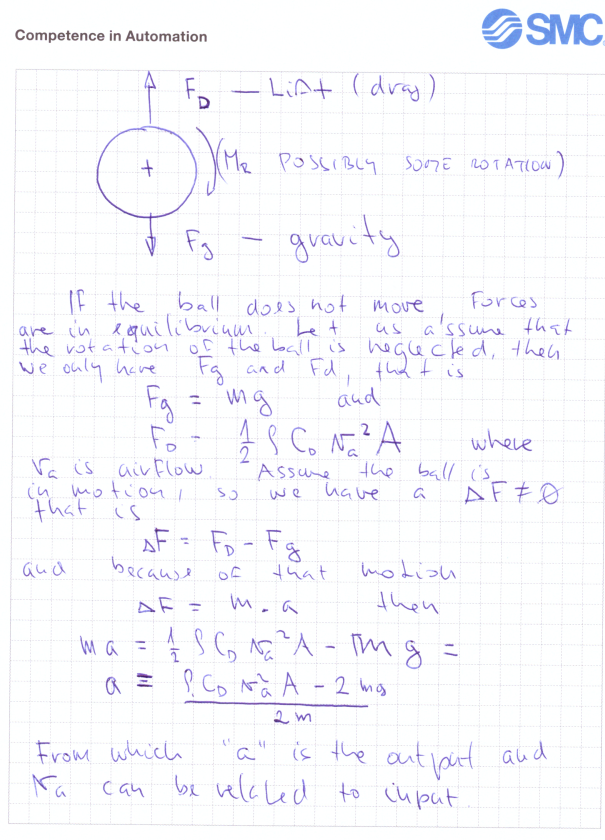 Competence in Automation
SMC
F_D — Lift (drag)
(M_R POSSIBLY SOME ROTATION)
+
F_g — gravity
If the ball does not move, Forces
are in equilibrium. Let us assume that
the rotation of the ball is neglected, then
we only have Fg and Fd, that is
F_g = mg and
F_D = 1/2 ρ C_D v_a² A where
v_a is airflow. Assume the ball is
in motion, so we have a ΔF ≠ 0
that is
ΔF = F_D - F_g
and because of that motion
ΔF = m . a then
m a = 1/2 ρ C_D v_a² A - m g =
a = (ρ C_D v_a² A - 2 mg) / 2 m
From which "a" is the output and
v_a can be related to input.